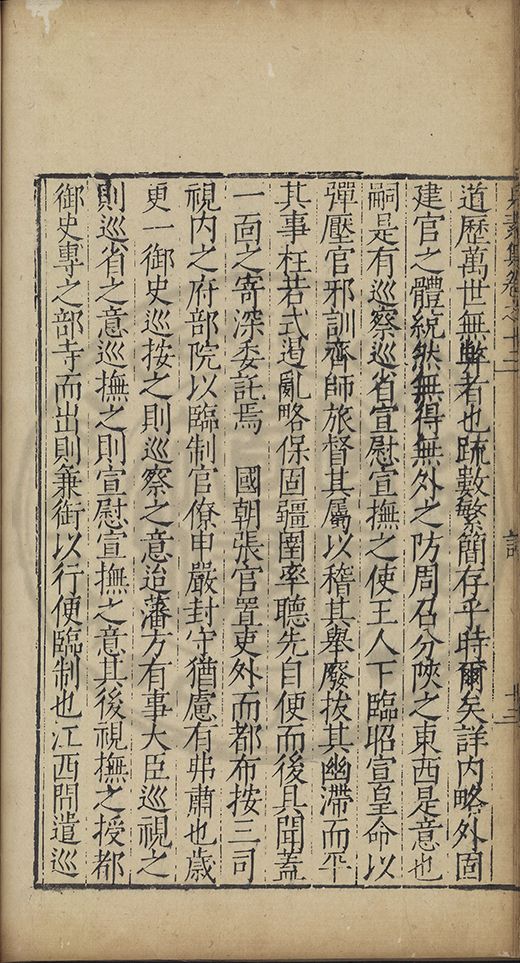 卷之十三
記
十三
道歷萬世無弊者也疏數繁簡存乎時爾矣詳内略外固
建官之體統然無得無外之防周召分陝之東西是意也
嗣是有巡察巡省宣慰宣撫之使王人下臨昭宣皇命以
彈壓官邪訓齊師旅督其屬以稽其舉廢拔其幽滯而平
其事枉若式遏亂略保固疆圉率聽先自便而後具聞蓋
一面之寄深委託焉　國朝張官置吏外而都布按三司
視内之府部院以臨制官僚申嚴封守猶慮有弗肅也歲
更一御史巡按之則巡察之意迨藩方有事大臣巡視之
則巡省之意巡撫之則宣慰宣撫之意其後視撫之授都
御史專之部寺而出則兼銜以行便臨制也江西間遣巡